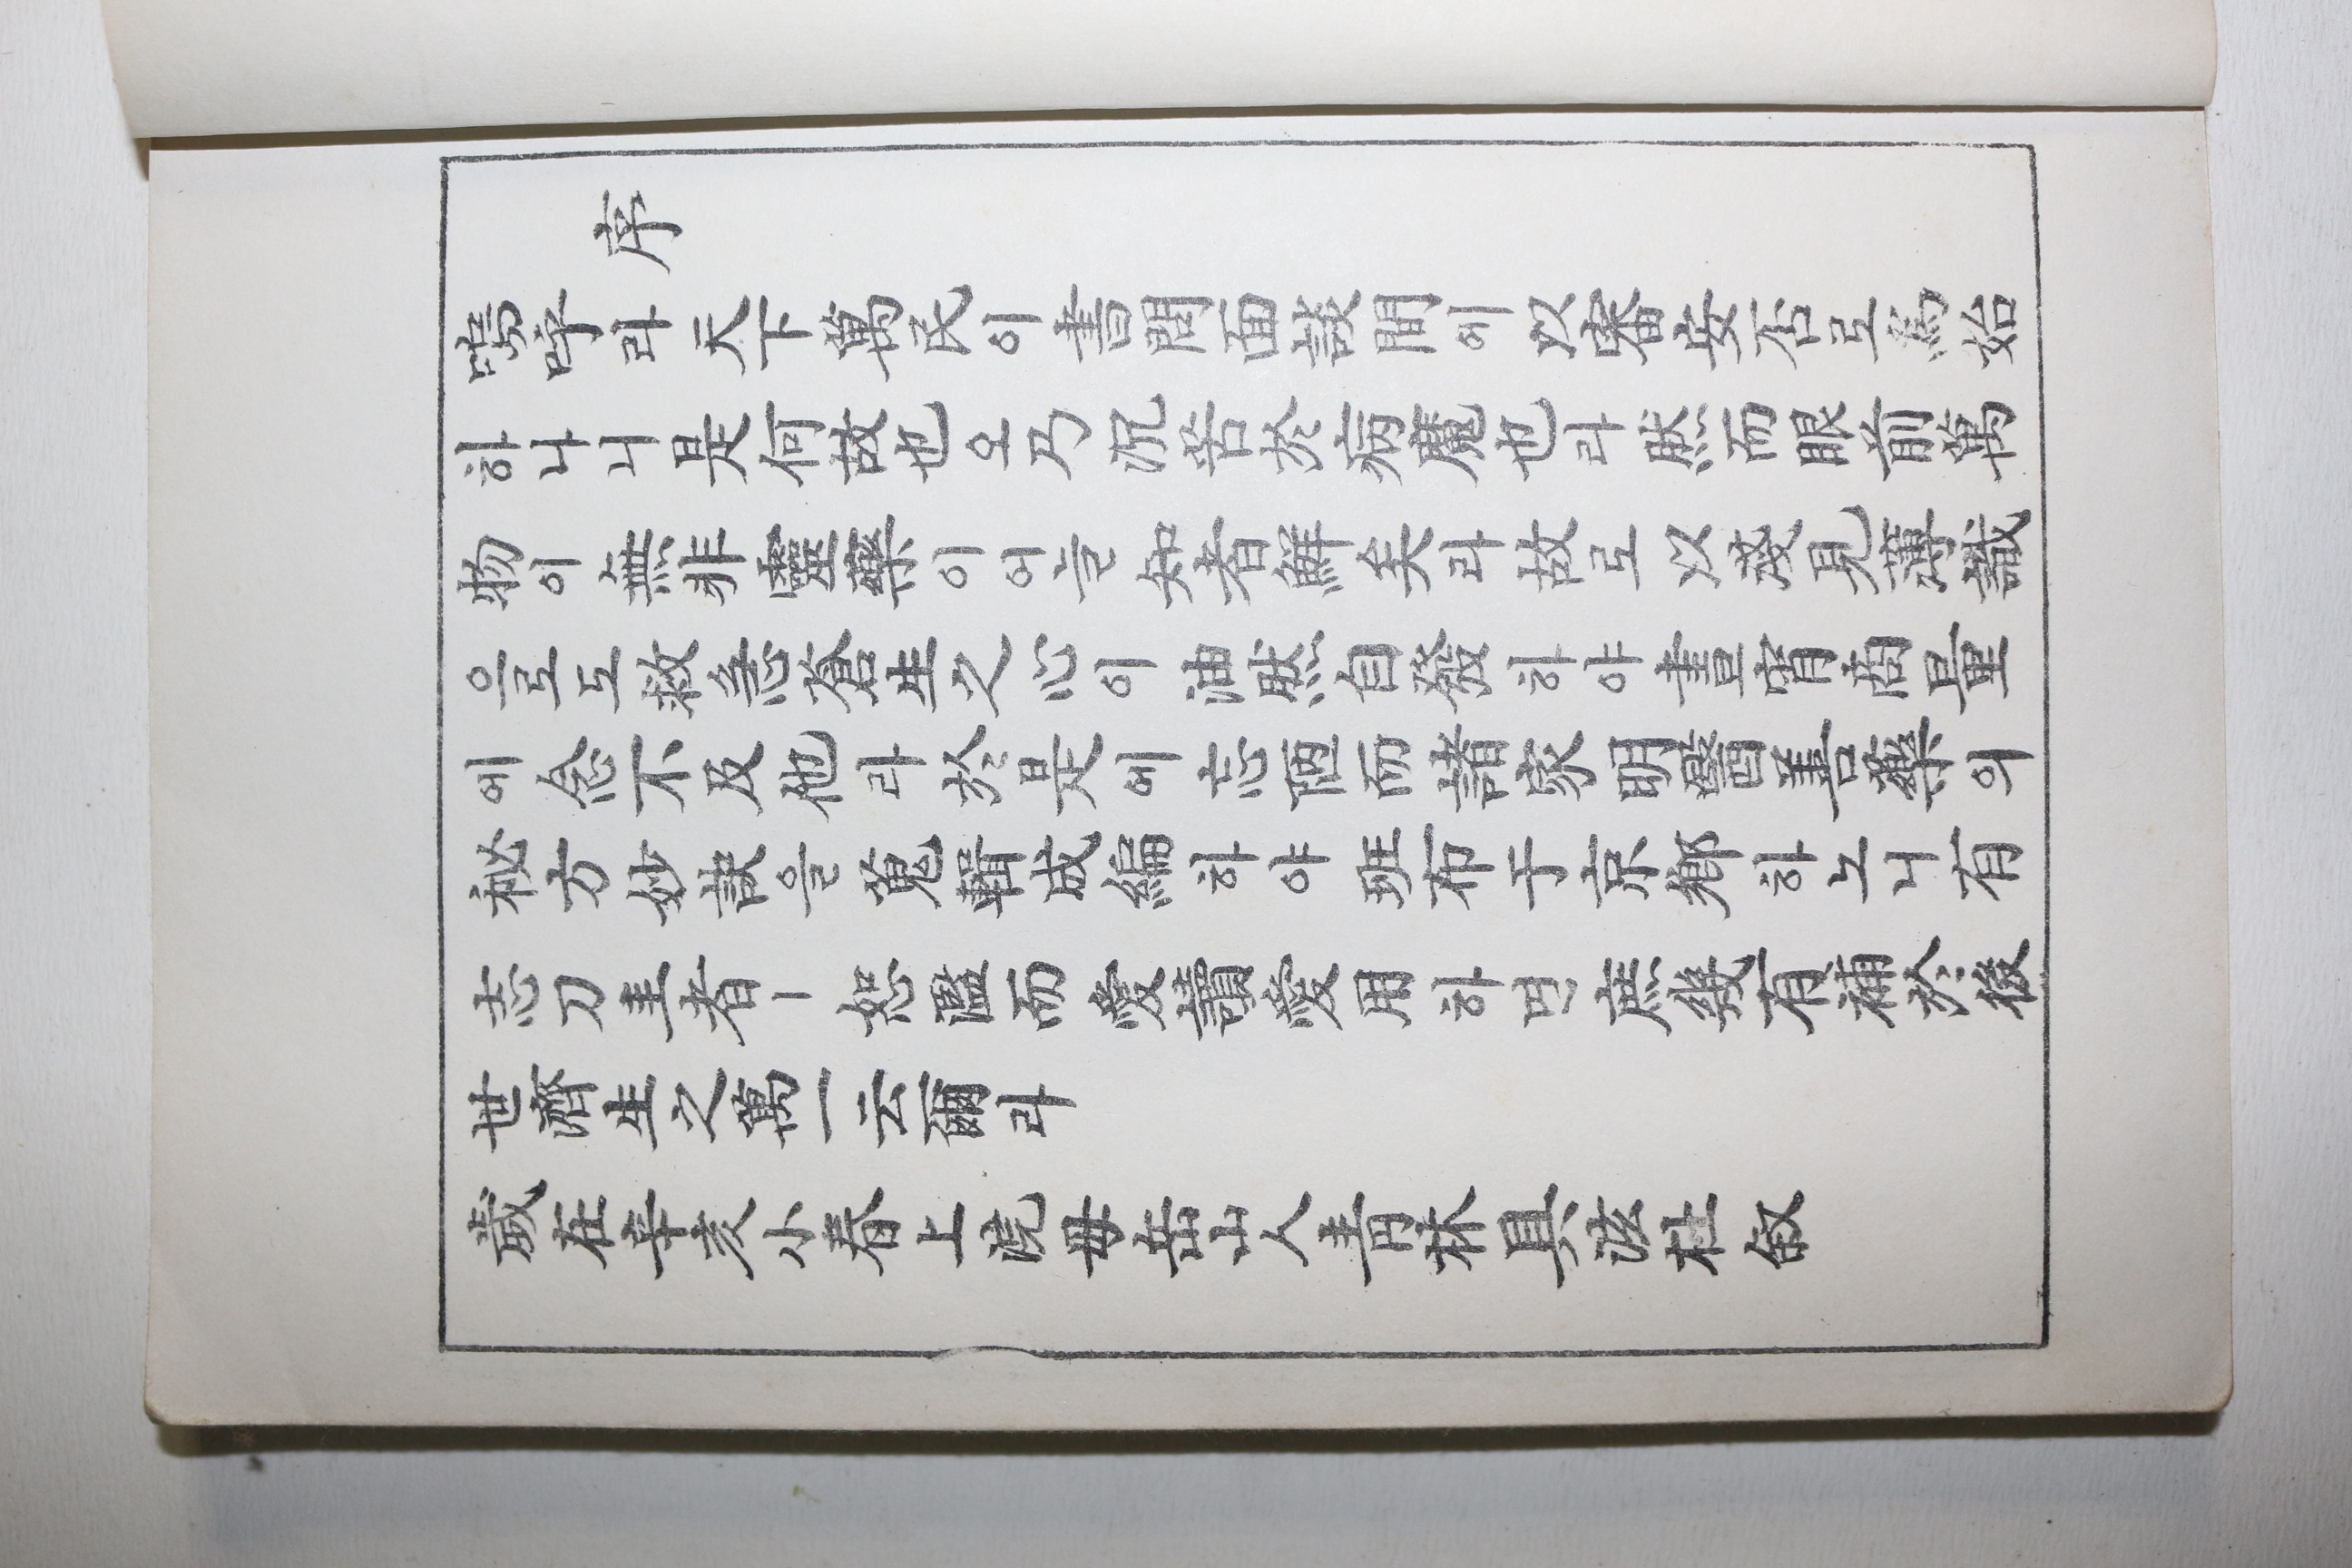 序
嗚呼라天下萬民이書問面談間에以審安否로爲始
하나니是何故也오乃沉苦於病魔也라然而眼前萬
物이無非靈藥이어늘知者鮮矣라故로以淺見薄識
으로도救急蒼生之心이油然自發하야晝宵商量
에念不及他라於是에忘陋而諸家明醫善藥의
秘方妙訣을蒐輯成編하야班布于京鄕하노니有
志刀圭者ㅣ恕濫而愛讀愛用하면庶幾有補於後
世濟生之萬一云爾라
歲在辛亥小春上浣毋岳山人靑林具滋杜叙